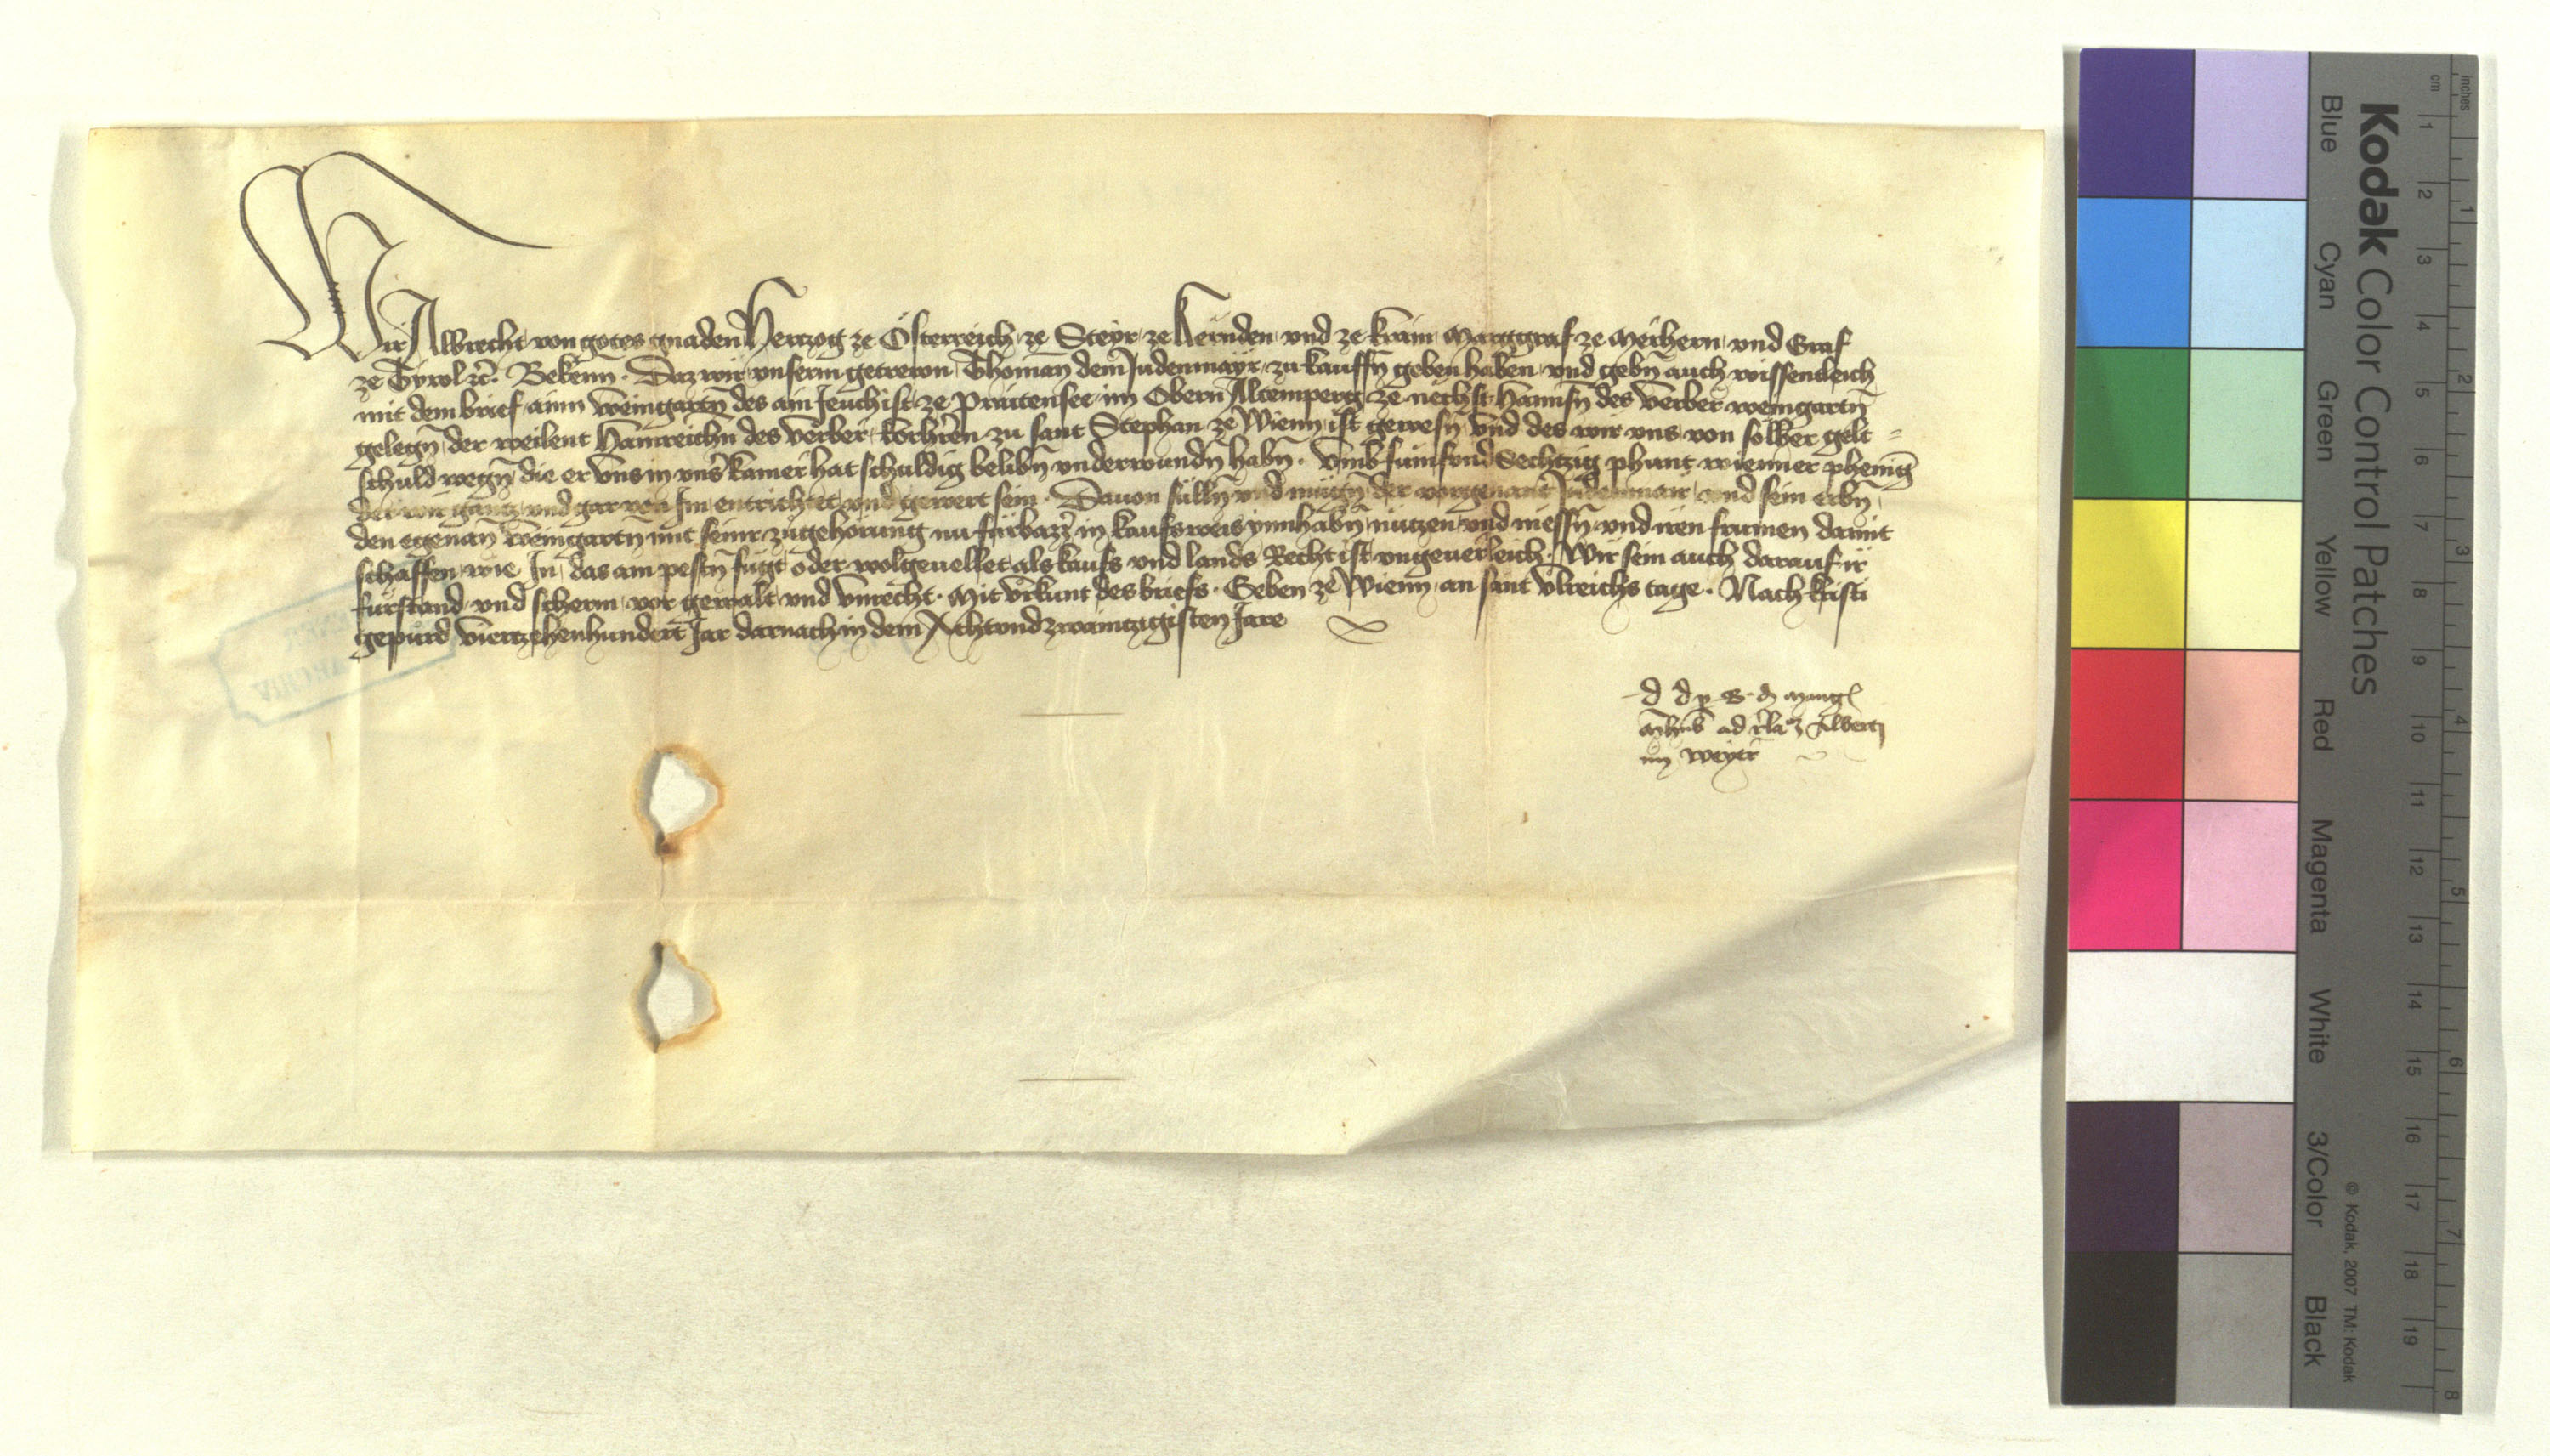 Wir Albrecht von gotes gnaden Hertzog ze Österreich ze Steyr ze Kernden vnd ze krain Marggraf ze Merhern vnd Graf
ze Tyrol etc. Bekenn. Daz wir vnserm getrewn Thoman dem Judenmayr zu kauffn geben haben vnd gebn auch wissentleich
mit dem brief ainn weingartn des ain Jeuch ist ze Prütensee im Obern Altemperg ze nechst hannsn des verber weingartn
gelegn der weilent hainreichn des verber korhren zu sant Stephan ze Wienn ist gewesn vnd des wir vns von solher gelt
schuld wegn die er vns in vnsr kamer hat schuldig belibn vnderwundn habn. vmb fumfvnd Sechtzig phunt wienner phenig
der wir gantz vnd gar von Im entrichtet vnd gewert sein. Dauon sülln vnd mügn der vorgenant Judenmair vnd sein erbn
den egenan weingartn mit seinr zugehörung nu fürbazz in kaufsweis ynnhabn nützen vnd niessn vnd iren frumen damit
schaffen wie In das am pestn fügt oder wolgeuellet als kaufs vnd lands Recht ist vngeuerleich. Wir sein auch darauf ir
fürstand vnd scherm vor gewalt vnd vnrecht. Mit vrkunt des briefs. Geben ze Wienn an sant vlreichs tage. Nach kristi
gepurd viertzehenhundert Jar darnach in dem Achtvndzwaintzigisten Jare
d d p
ad Alberti
weyer
Kodak Color Control Patches
Blue Cyan Green Yellow Red Magenta White 3/Color Black
© Kodak, 2007 TM: Kodak
cm 1 2 3 4 5 6 7 8 9 10 11 12 13 14 15 16 17 18 19
inches 1 2 3 4 5 6 7 8